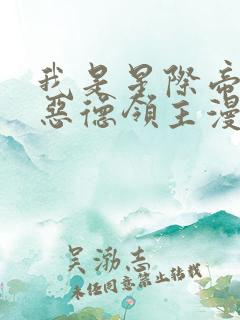 我是星際帝
惡德領主漫
吴渤志
未经同意禁止转载